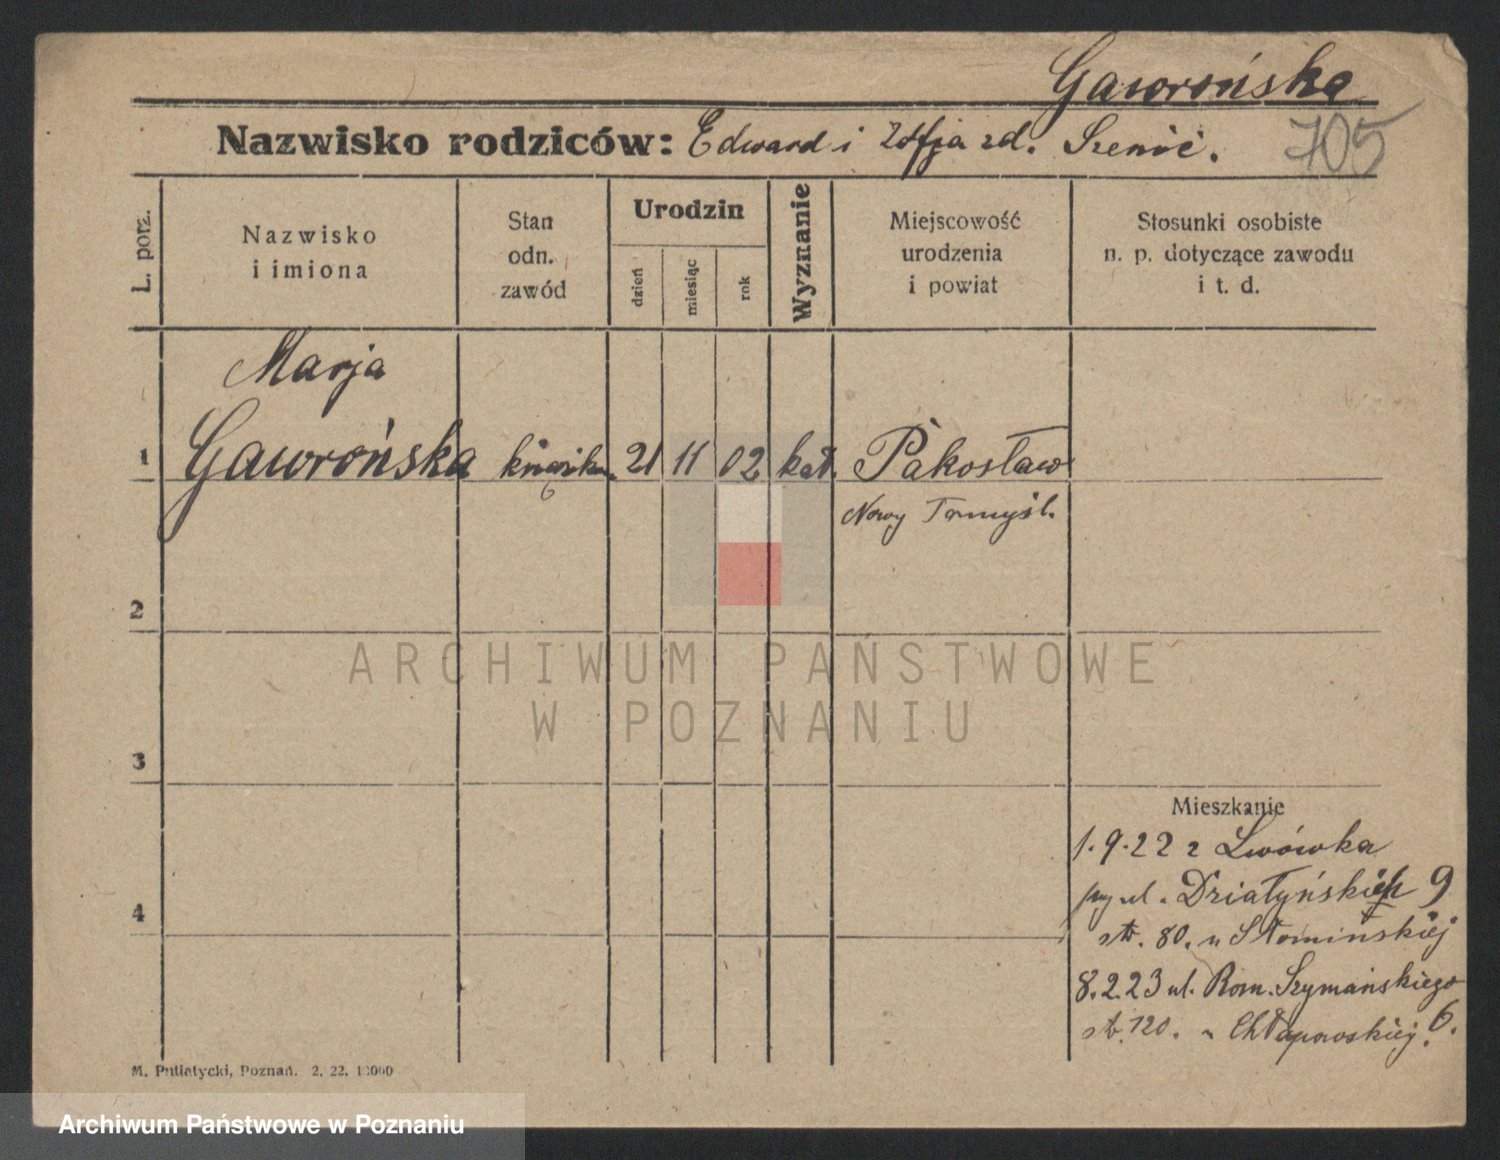 Gawrońska
Nazwisko rodziców: Edward i Zofja zd. Szenić.
705
L. porz.
Nazwisko
i imiona
Stan
odn.
zawód
Urodzin
dzień
miesiąc
rok
Wyznanie
Miejscowość
urodzenia
i powiat
Stosunki osobiste
n. p. dotyczące zawodu
i t. d.
Marja
1 Gawrońska 21 11 02 kat. Pakosław
Nowy Tomyśl.
2
ARCHIWUM PAŃSTWOWE
W POZNANIU
3
Mieszkanie
1.9.22 z Lwówka
przy ul. Działyńskich 9
str. 80. u Słomińskiej
4
8.2.23 ul. Rom. Szymańskiego
str. 120. u Chłapowskiej. 6.
M. Putiatycki, Poznań. 2. 22.
Archiwum Państwowe w Poznaniu